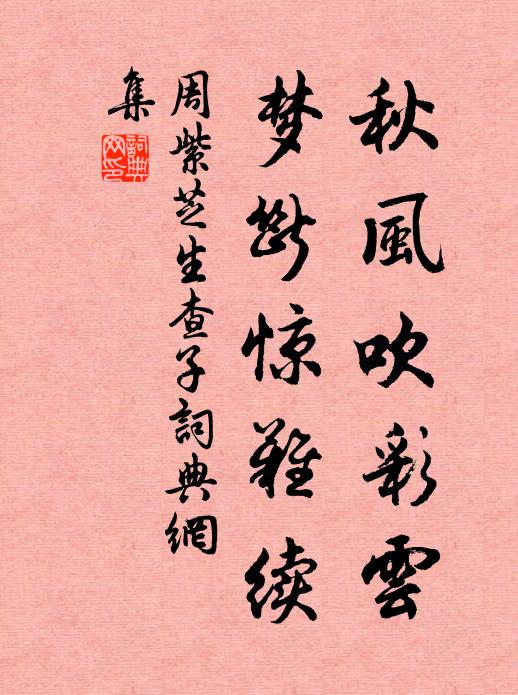 秋風吹彩雲
梦斷惊難续
周紫芝生查子詞典網
集
詞典
网印